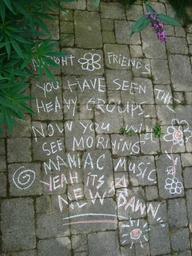 ALRIGHT FRIENDS
YOU HAVE SEEN THE
HEAVY GROUPS
NOW YOU WILL
SEE MORNING
MANIAC MUSIC
YEAH ITS A
NEW DAWN.